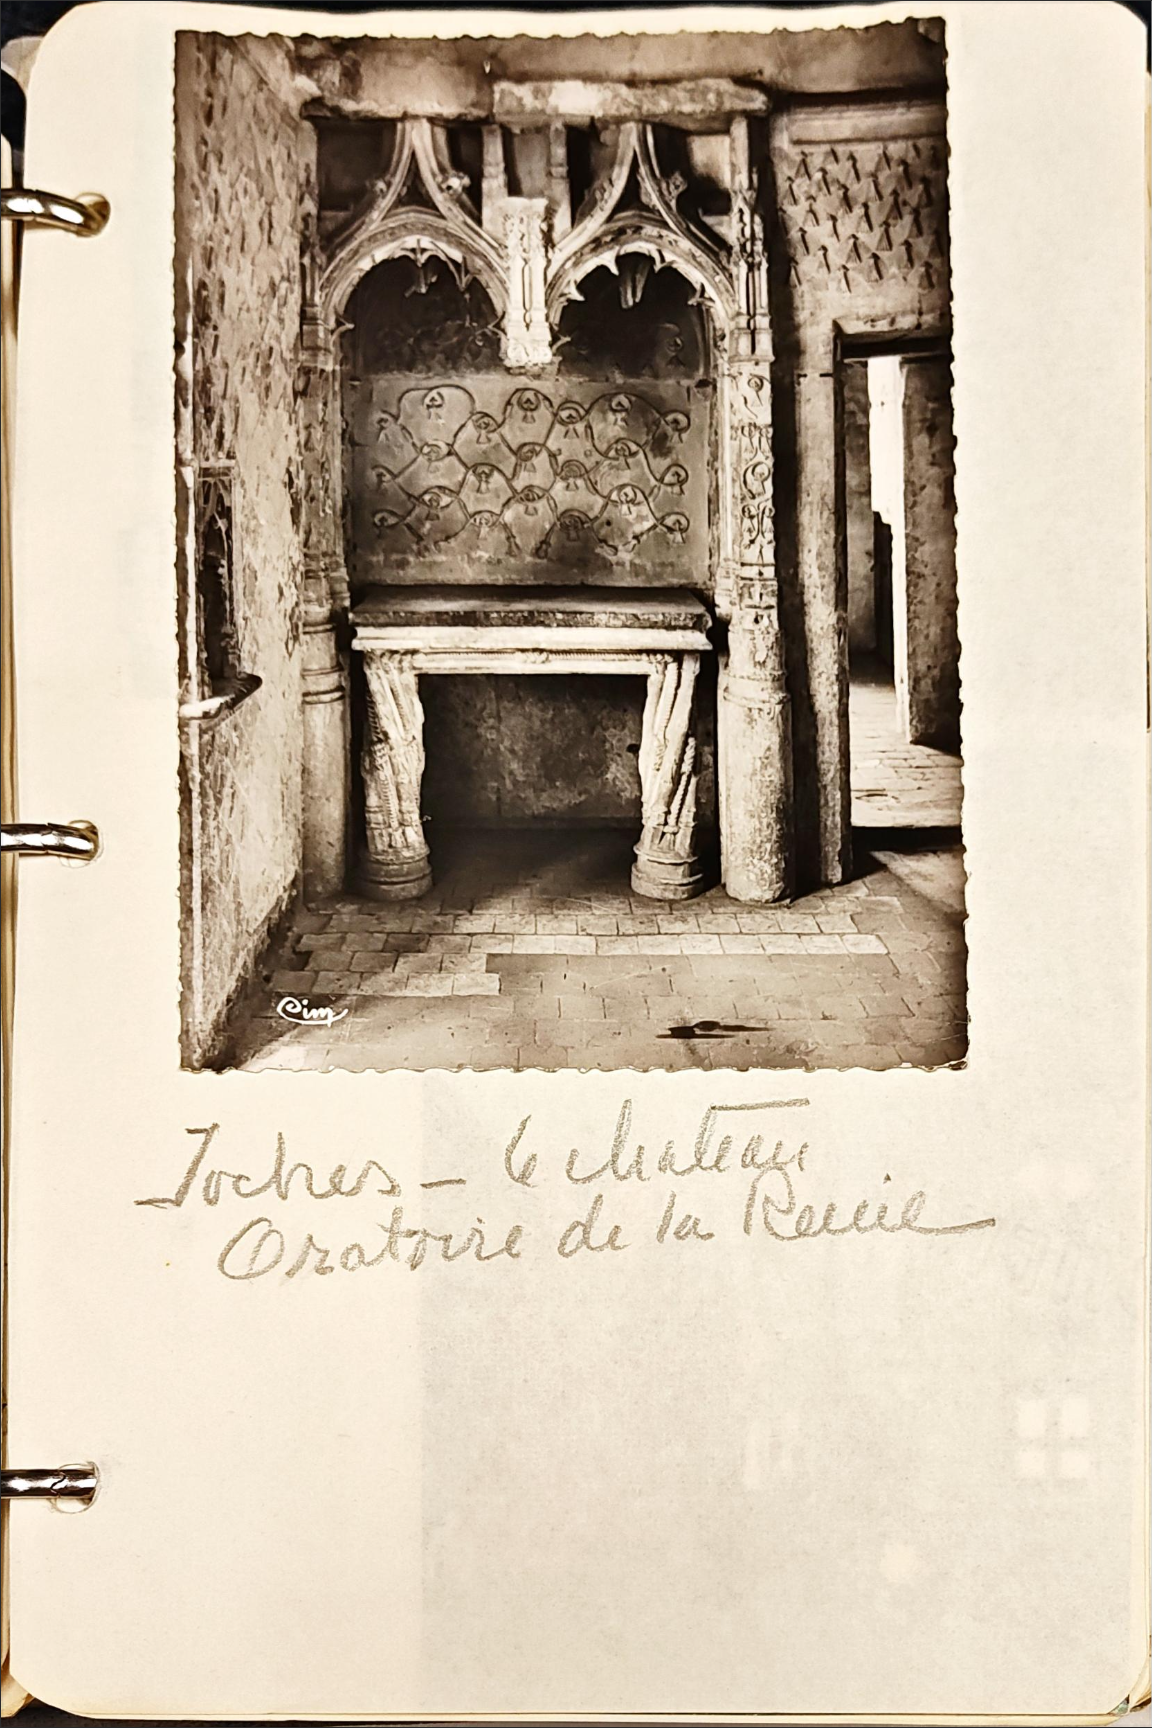 Cim
Loches - le chateau
Oratoire de la Reine